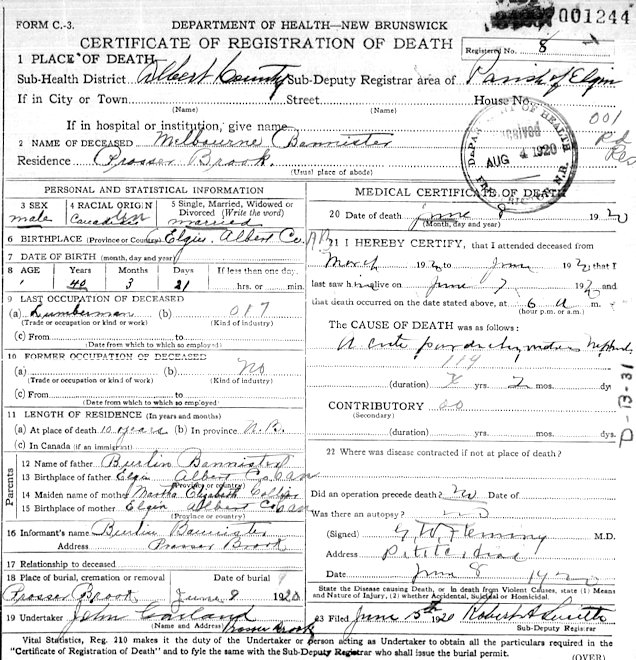 001244
FORM C.-3.
DEPARTMENT OF HEALTH—NEW BRUNSWICK
CERTIFICATE OF REGISTRATION OF DEATH
Registered No. 8
1 PLACE OF DEATH
Sub-Health District Albert County Sub-Deputy Registrar area of Parish of Elgin
If in City or Town Street House No.
(Name) (Name)
If in hospital or institution, give name
001
2 NAME OF DECEASED Melbourne Bannister
Residence Prosser Brook
(Usual place of abode)
DEPARTMENT OF HEALTH
RECEIVED
AUG 4 1920
FREDERICTON, N.B.
PERSONAL AND STATISTICAL INFORMATION
3 SEX 4 RACIAL ORIGIN 5 Single, Married, Widowed or Divorced (Write the word)
male Canadian married
6 BIRTHPLACE (Province or Country) Elgin Albert Co.
7 DATE OF BIRTH (month, day and year)
8 AGE Years Months Days If less than one day,
40 3 21 hrs. or min.
9 LAST OCCUPATION OF DECEASED
(a) Lumberman (b) 017
(Trade or occupation or kind or work) (Kind of industry)
(c) From
(Date from which to which so employed)
10 FORMER OCCUPATION OF DECEASED
(a) (b) no
(Trade or occupation or kind of work) (Kind of industry)
(c) From
(Date from which to which so employed)
11 LENGTH OF RESIDENCE (In years and months)
(a) At place of death 10 years (b) In province N.B.
(c) In Canada (if an immigrant)
Parents
12 Name of father Burlin Bannister
13 Birthplace of father Elgin Albert Co Can
(Province or country)
14 Maiden name of mother Martha Elizabeth
15 Birthplace of mother Elgin Albert Co Can
(Province or country)
16 Informant's name Burlin Bannister
Address Prosser Brook
17 Relationship to deceased
18 Place of burial, cremation or removal Date of burial
Prosser Brook June 8 1920
19 Undertaker John Garland
Name and Address Prosser Brook
MEDICAL CERTIFICATE OF DEATH
20 Date of death June 8 1920
(Month, day and year)
21 I HEREBY CERTIFY, that I attended deceased
from March 1920 to June 1920 that I
last saw him alive on June 7 1920 and
that death occurred on the date stated above, at 6 a m.
(hour p.m. or a.m.)
The CAUSE OF DEATH was as follows:
Acute Nephritis
119
(duration) yrs. 2 mos. dys.
CONTRIBUTORY 00
(Secondary)
(duration) yrs. mos. dys.
D-13-31
22 Where was disease contracted if not at place of death?
Did an operation precede death? no Date of
Was there an autopsy? no
(Signed) Fleming M.D.
Address Petitcodiac
Date June 8 1920
State the Disease causing Death, or in death from Violent Causes, state (1) Means and Nature of Injury, (2) whether Accidental, Suicidal or Homicidal.
23 Filed June 15th 1920 Robert A Smith
Sub-Deputy Registrar
Vital Statistics, Reg. 210 makes it the duty of the Undertaker or person acting as Undertaker to obtain all the particulars required in the
"Certificate of Registration of Death" and to fyle the same with the Sub-Deputy Registrar who shall issue the burial permit.
(OVER)